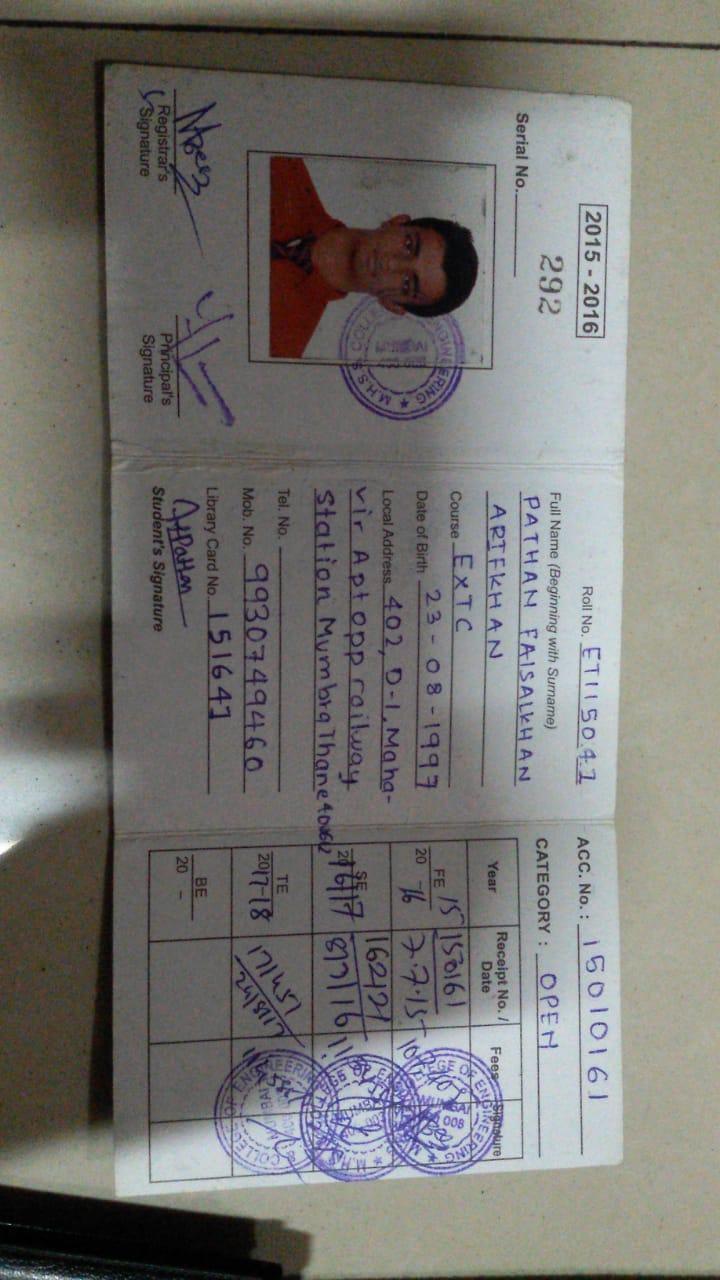 2015 - 2016
292
Serial No.
M.H.S.S. COLLEGE OF ENGINEERING
Registrar's Signature
Principal's Signature
Roll No. ET115041
Full Name (Beginning with Surname)
PATHAN FAISALKHAN
ARIFKHAN
Course EXTC
Date of Birth 23-08-1997
Local Address 402, D-1, Maha-
vir Apt opp railway
station Mumbra Thane
Tel. No.
Mob. No. 9930749460
Library Card No. 151641
Student's Signature
ACC. No. : 15010161
CATEGORY : OPEN
Year Receipt No. / Date Fees Signature
FE 2015-16 150161 7.7.15
SE 2016/17 162121
TE 2017-18
BE 20 -